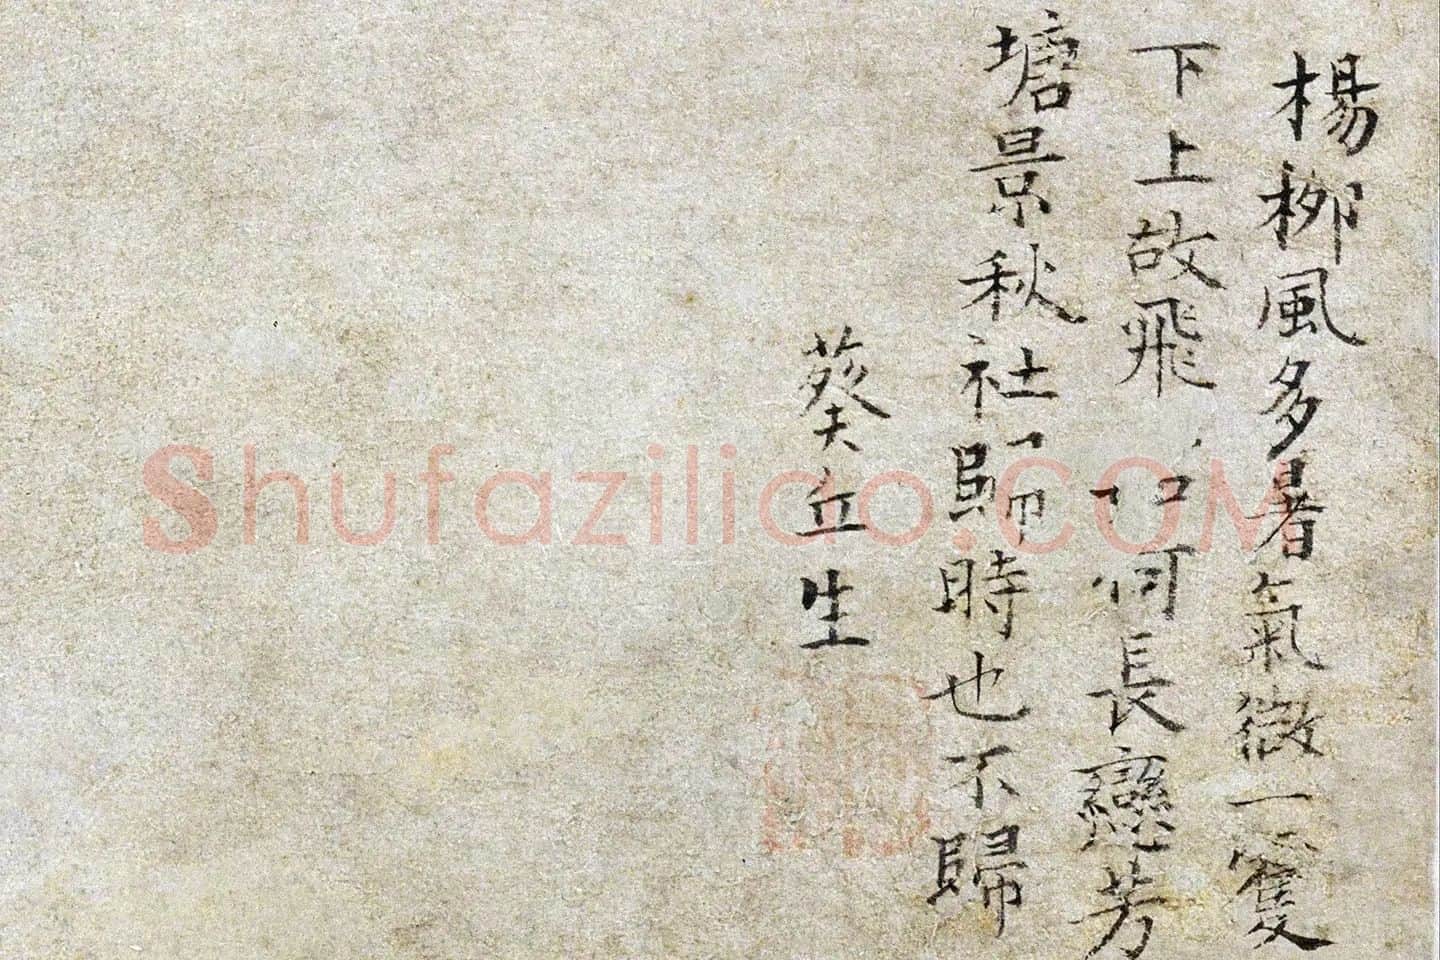 楊柳風多暑氣微一雙
下上故飛 如何長戀芳
塘景秋社歸時也不歸
葵丘生
Shufaziliao.COM